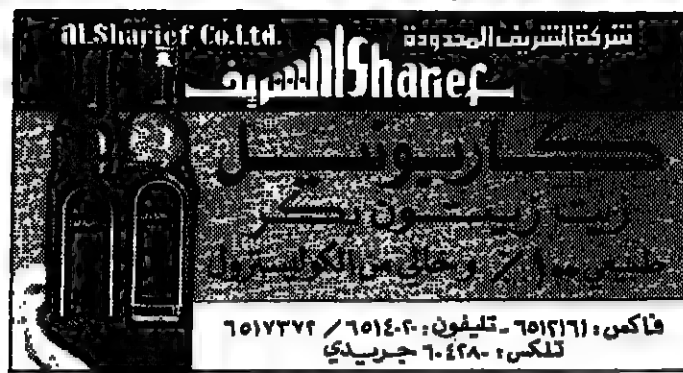 AlSharief Co.Ltd. شركة الشريف المحدودة
الشريف Sharief
كاربونيل
زيت زيتون بكر
طبيعي ١٠٠٪ وخالي من الكوليسترول
فاكس: ٦٥١٢١٦١ - تليفون: ٦٥١٤٠٢٠ / ٦٥١٧٣٧٢
تلكس: ٦٠٤٢٨٠ جريدي